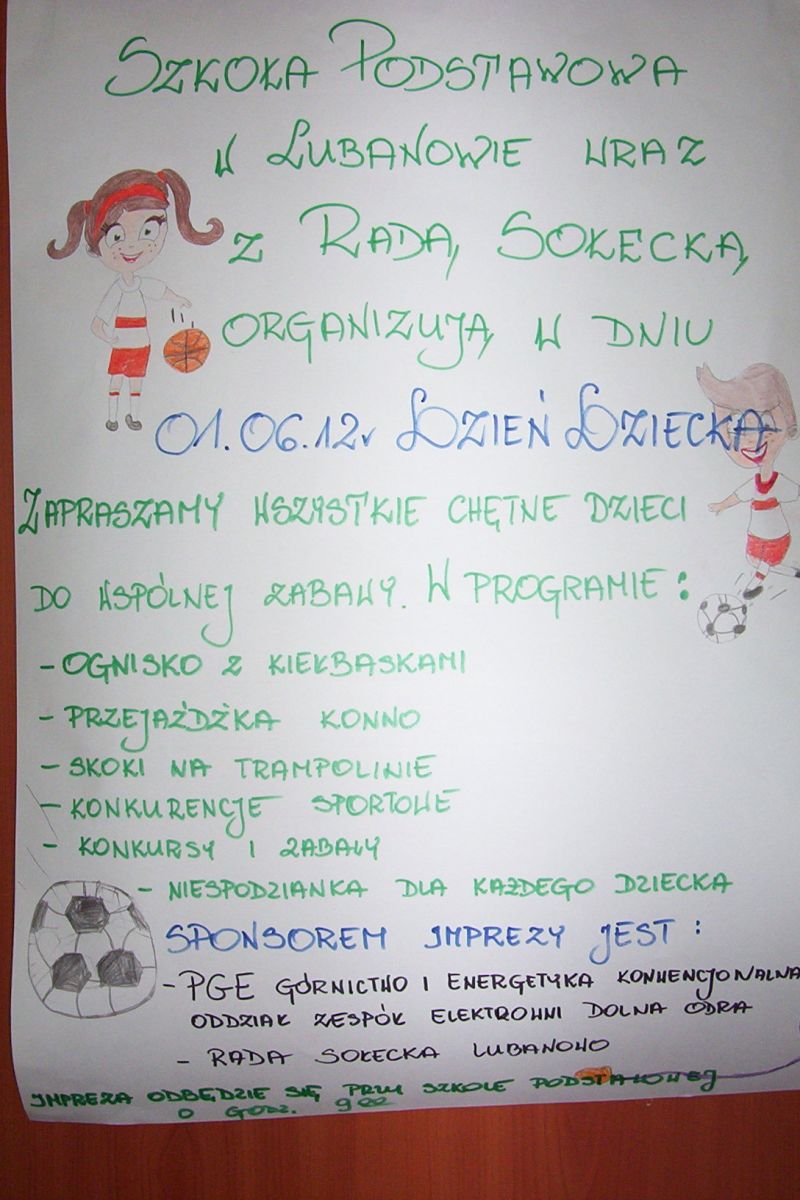 SZKOŁA PODSTAWOWA
W LUBANOWIE WRAZ
Z RADĄ SOŁECKĄ
ORGANIZUJĄ W DNIU
01.06.12r DZIEŃ DZIECKA
ZAPRASZAMY WSZYSTKIE CHĘTNE DZIECI
DO WSPÓLNEJ ZABAWY. W PROGRAMIE:
- OGNISKO Z KIEŁBASKAMI
- PRZEJAŻDŻKA KONNO
- SKOKI NA TRAMPOLINIE
- KONKURENCJE SPORTOWE
- KONKURSY I ZABAWY
- NIESPODZIANKA DLA KAŻDEGO DZIECKA
SPONSOREM IMPREZY JEST:
- PGE GÓRNICTWO I ENERGETYKA KONWENCJONALNA
ODDZIAŁ ZESPÓŁ ELEKTROWNI DOLNA ODRA
- RADA SOŁECKA LUBANOWO
IMPREZA ODBĘDZIE SIĘ PRZY SZKOLE PODSTAWOWEJ
O GODZ. 9 00